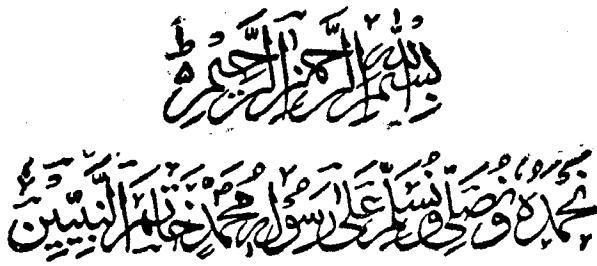 بِسْمِ اللهِ الرَّحْمٰنِ الرَّحِيْمِ ط
نَحْمَدُهٗ وَنُصَلِّیْ وَنُسَلِّمُ عَلٰی رَسُوْلِهٖ مُحَمَّدٍ خَاتَمِ النَّبِیِّیْنَ